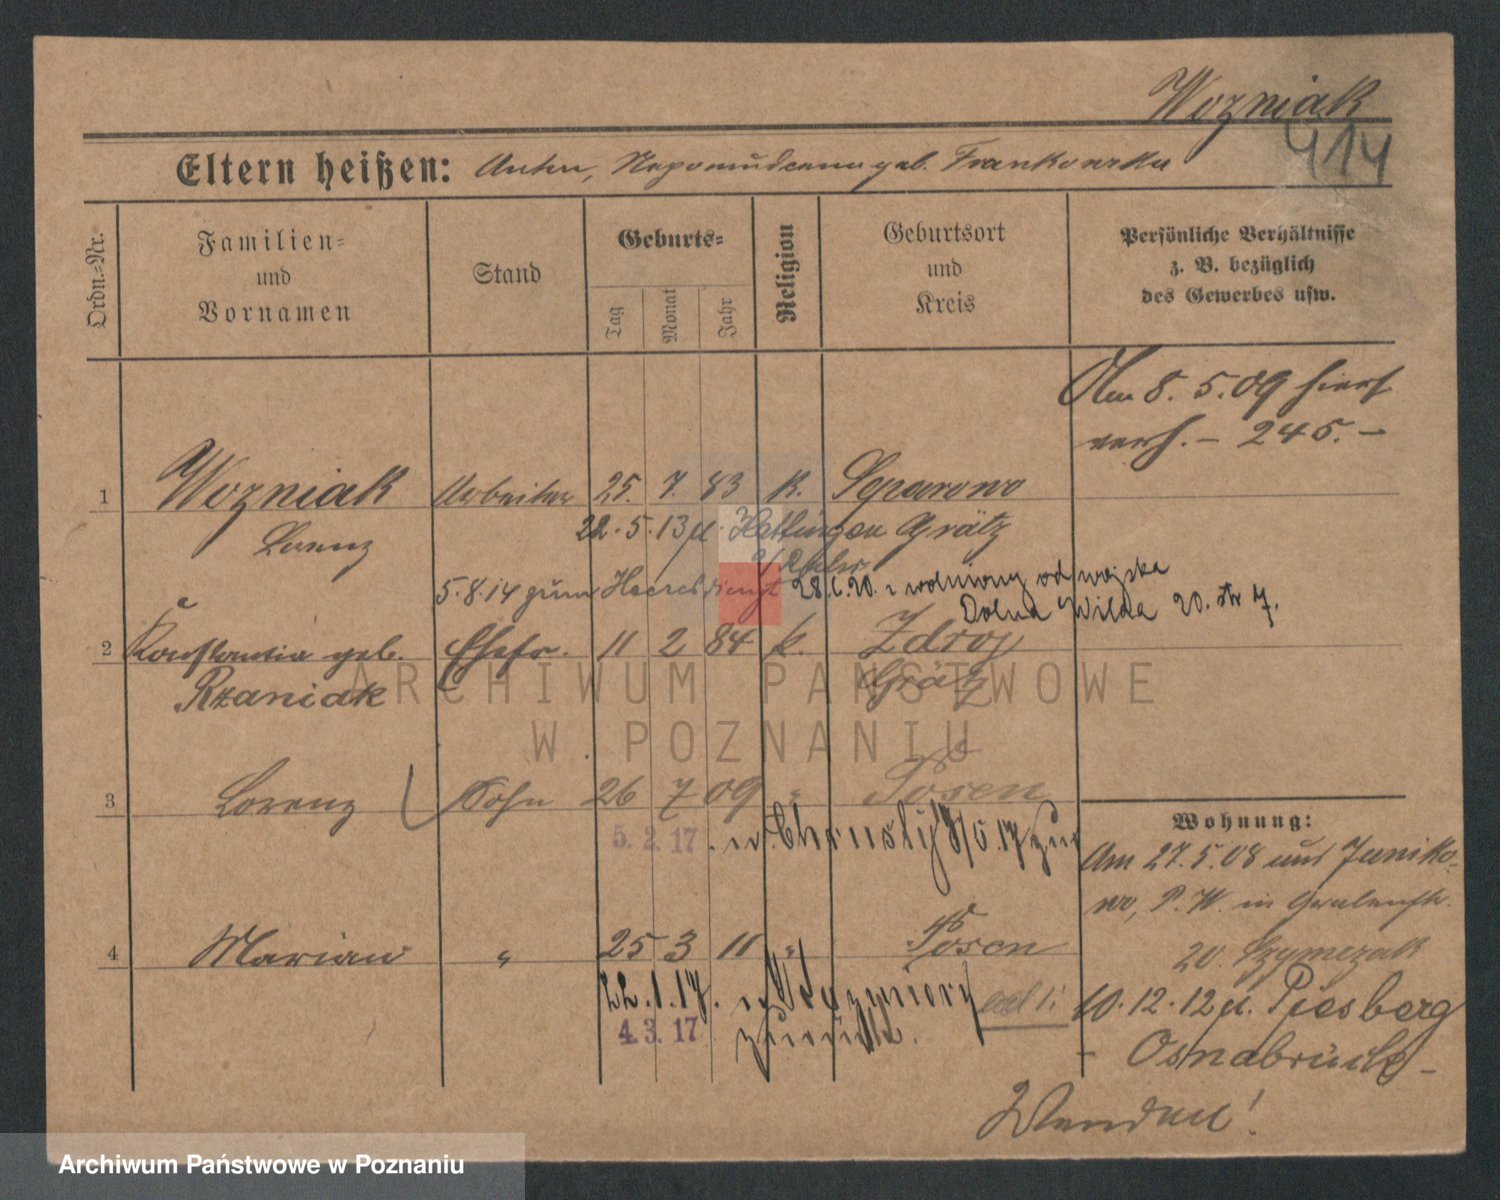 Wozniak
414
Eltern heißen: Anton, Nepomucena geb. Frankowska
Ordn.-Nr.
Familien-
und
Vornamen
Stand
Geburts-
Tag
Monat
Jahr
Religion
Geburtsort
und
Kreis
Persönliche Verhältnisse
z. B. bezüglich
des Gewerbes usw.
Am 8. 5. 09 hiers
verh. – 245. –
1 Wozniak Arbeiter 25. 7. 83 k. Separowo
Lorenz 22. 5. 13 Hettingen Grätz
5. 8. 14 zum Heeresdienst 28.6.20. zwolniony od wojska
Dolna Wilda 20. str 7.
2 Konstantia geb. Ehefr. 11 2 84 k. Zdroj
Rzaniak Grätz
3 Lorenz Sohn 26 7 09 " Posen
5. 2. 17
Wohnung:
Am 27. 5. 08 aus Juniko-
wo, P. W. in
20. Szymczak
4 Marian " 25 3 11 " Posen
22. 1. 17.
4. 3. 17 zurück.
10. 12. 12 Piesberg
- Osnabrück -
Wenden!
ARCHIWUM PAŃSTWOWE
W POZNANIU
Archiwum Państwowe w Poznaniu